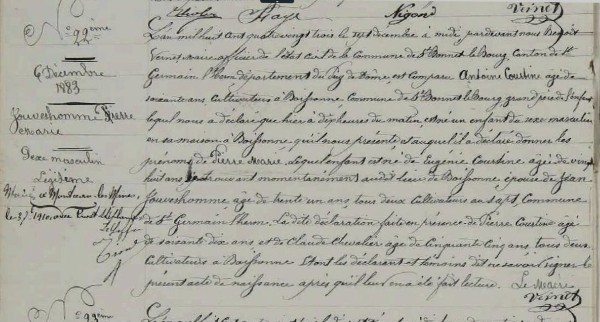 Vernet
N° 22ème
6 Décembre
1883
Jouveshomme Pierre
Marie
Sexe masculin
Légitime
Marié à Montceau-les-Mines
L'an mil huit cent quatre vingt trois le sept décembre à midi, pardevant nous Benoit
Vernet, maire officier de l'état civil de la Commune de St Bonnet le Bourg Canton de St
Germain l'herm département du Puy de Dôme, est comparu Antoine Courtine âgé de
soixante ans, cultivateur à Boissonne, Commune de St Bonnet le Bourg grand père de l'enfant
lequel nous a déclaré que hier à dix heures du matin est né un enfant du sexe masculin
en sa maison à Boissonne, qu'il nous présente et auquel il a déclaré donner les
prénoms de Pierre Marie. Lequel enfant est né de Eugénie Courtine âgée de vingt
huit ans, se trouvant momentanément audit lieu de Boissonne, épouse de Jean
Jouveshomme âgé de trente un ans, tous deux cultivateurs au Commune
de St Germain l'herm. La dite déclaration faite en présence de Pierre Courtine âgé
de soixante dix ans et de Claude Chevalier âgé de cinquante cinq ans, tous deux
cultivateurs à Boissonne et ont les déclarant et témoins dit ne savoir signer le
présent acte de naissance après qu'il leur en a été fait lecture. Le Maire
Vernet